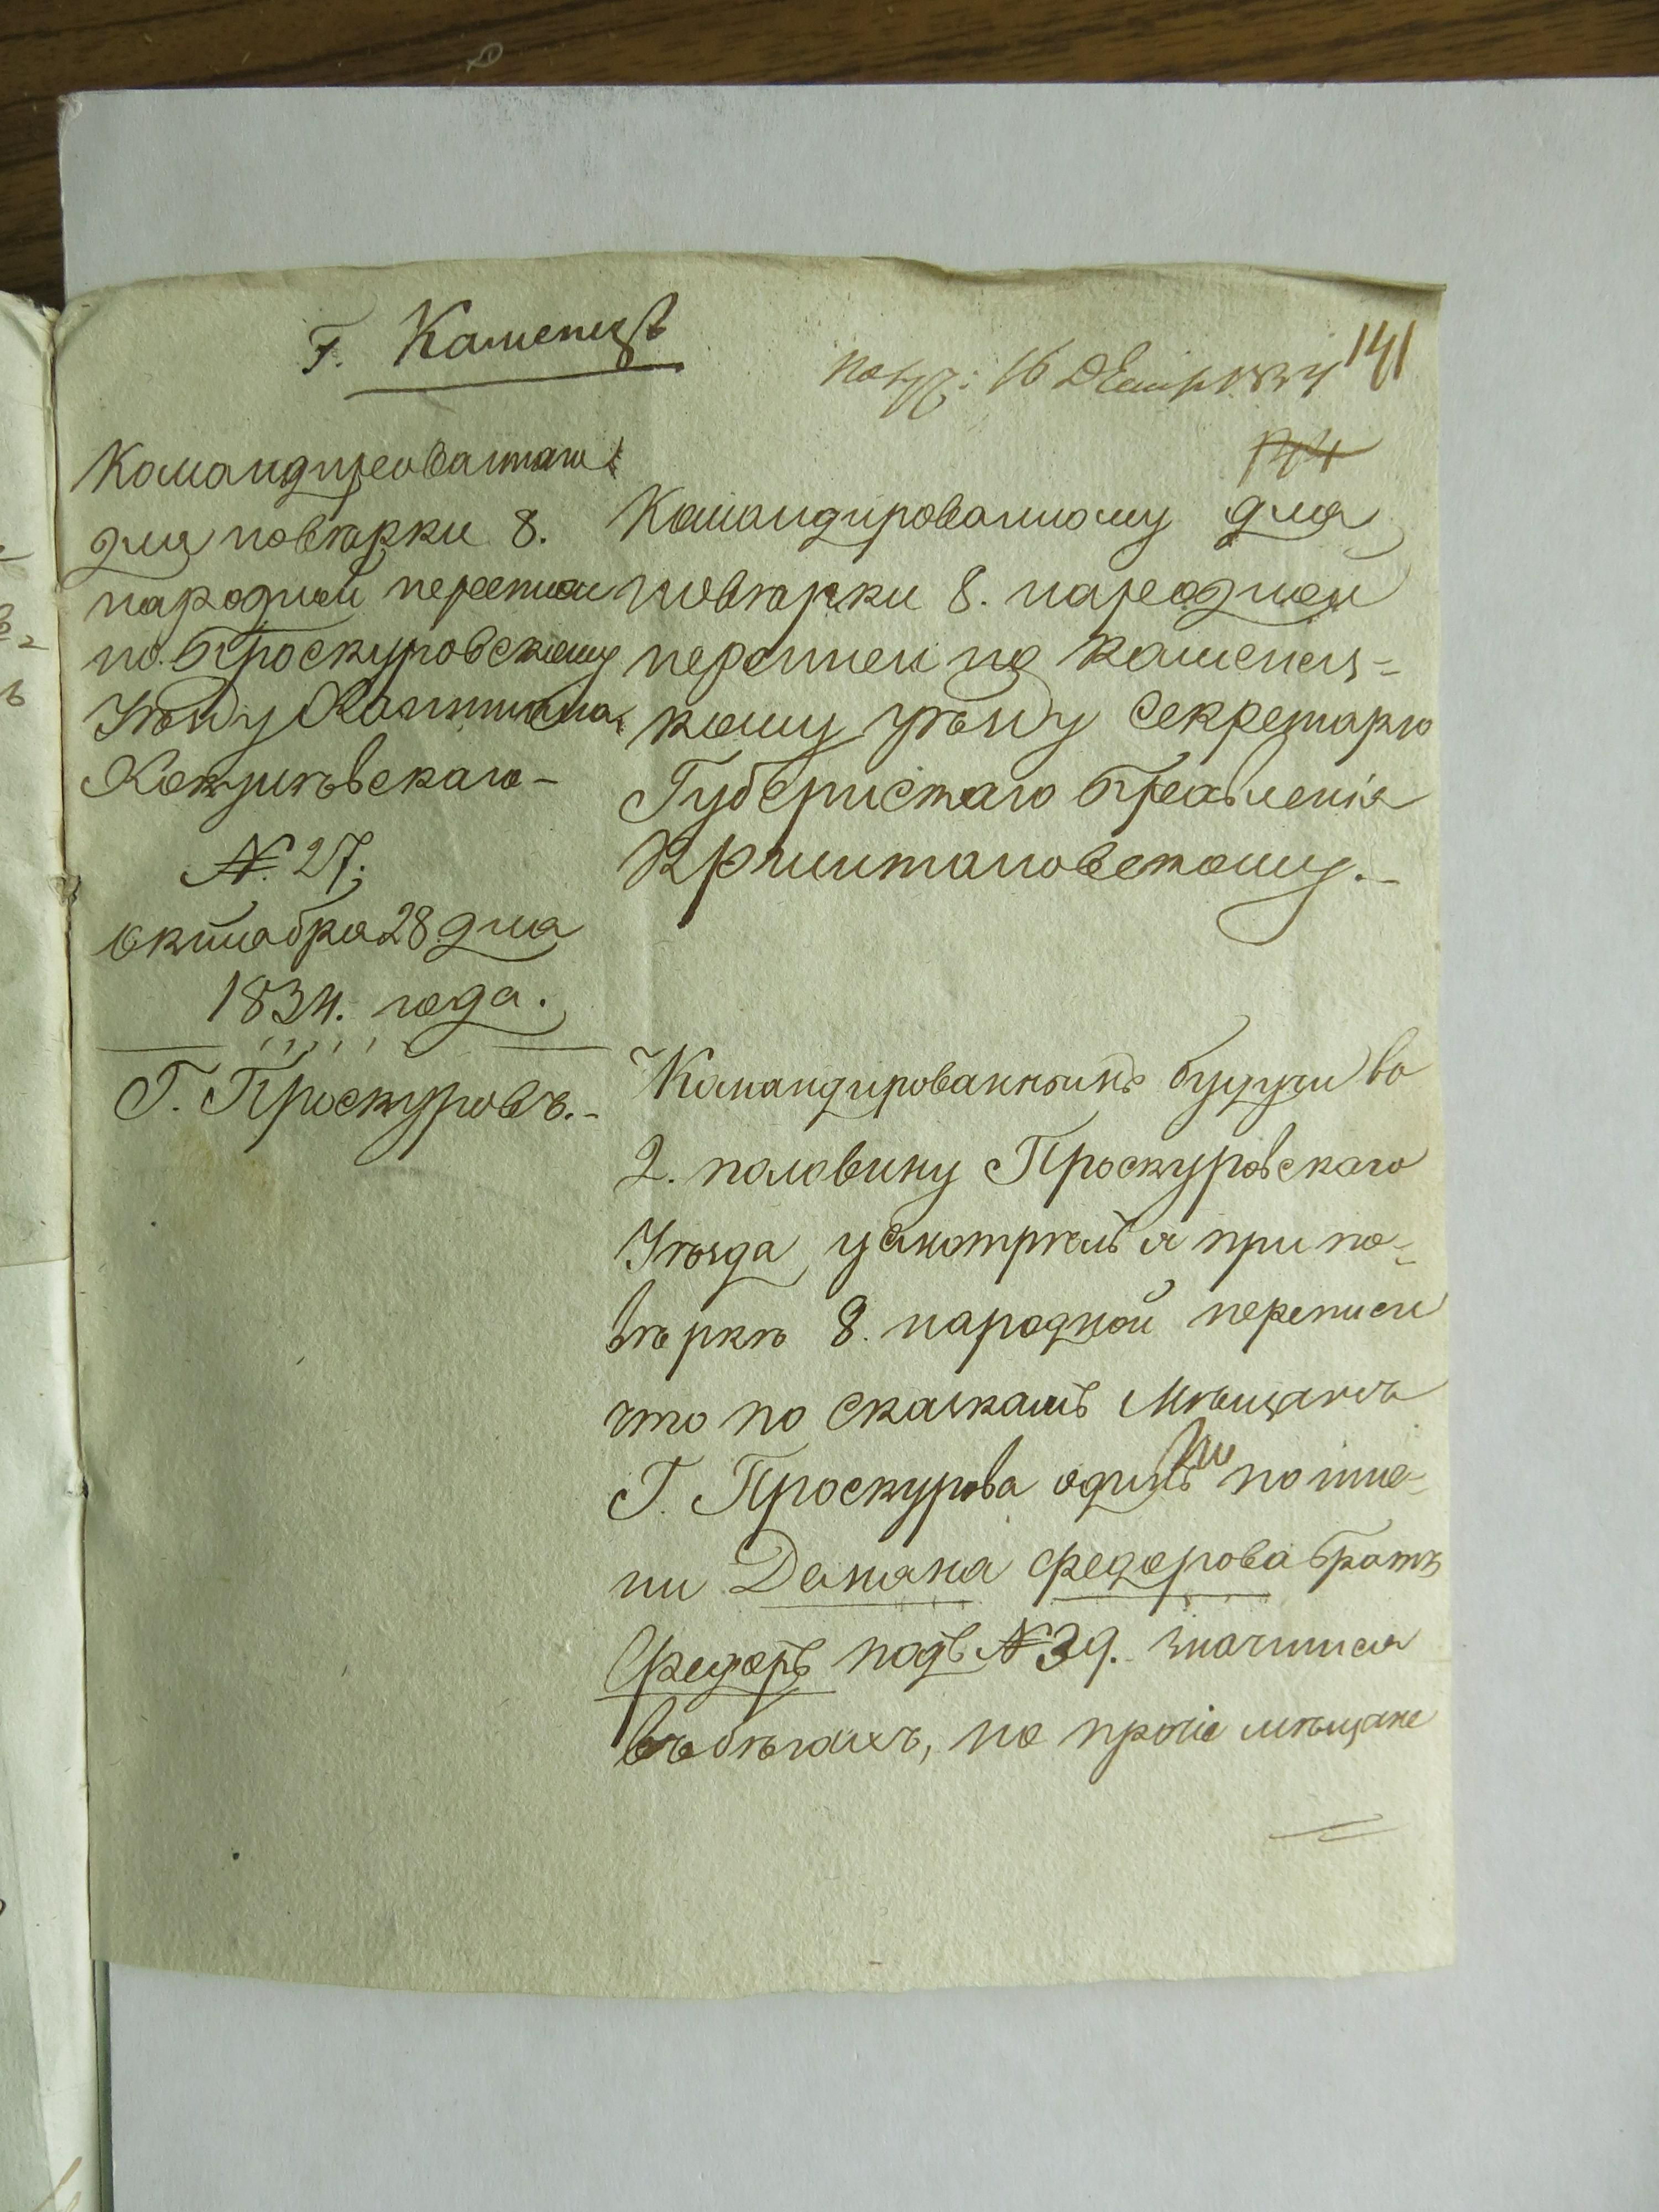 Г. Каменецъ
получ: 16 Декабр 1834
141
174
Командированнаго
для повѣрки 8.
народной переписи
по Проскуровскому
Уѣзду Капитана
№. 27.
октября 28 дня
1834. года.
Г. Проскуровъ.
Командированному для
повѣрки 8. народной
переписи по Каменец-
кому уѣзду Секретарю
Губернскаго Правленія
Крыштановскому.
Командированнымъ будучи во
2. половину Проскуровскаго
Уѣзда усмотрѣлъ я при по-
вѣркѣ 8. народной переписи
что по Сказкамъ Мѣщанъ
Г. Проскурова одинъ по име-
ни Демяна Федорова братъ
Федоръ подъ № 39. значится
въ бѣгахъ, но прочіе мѣщане